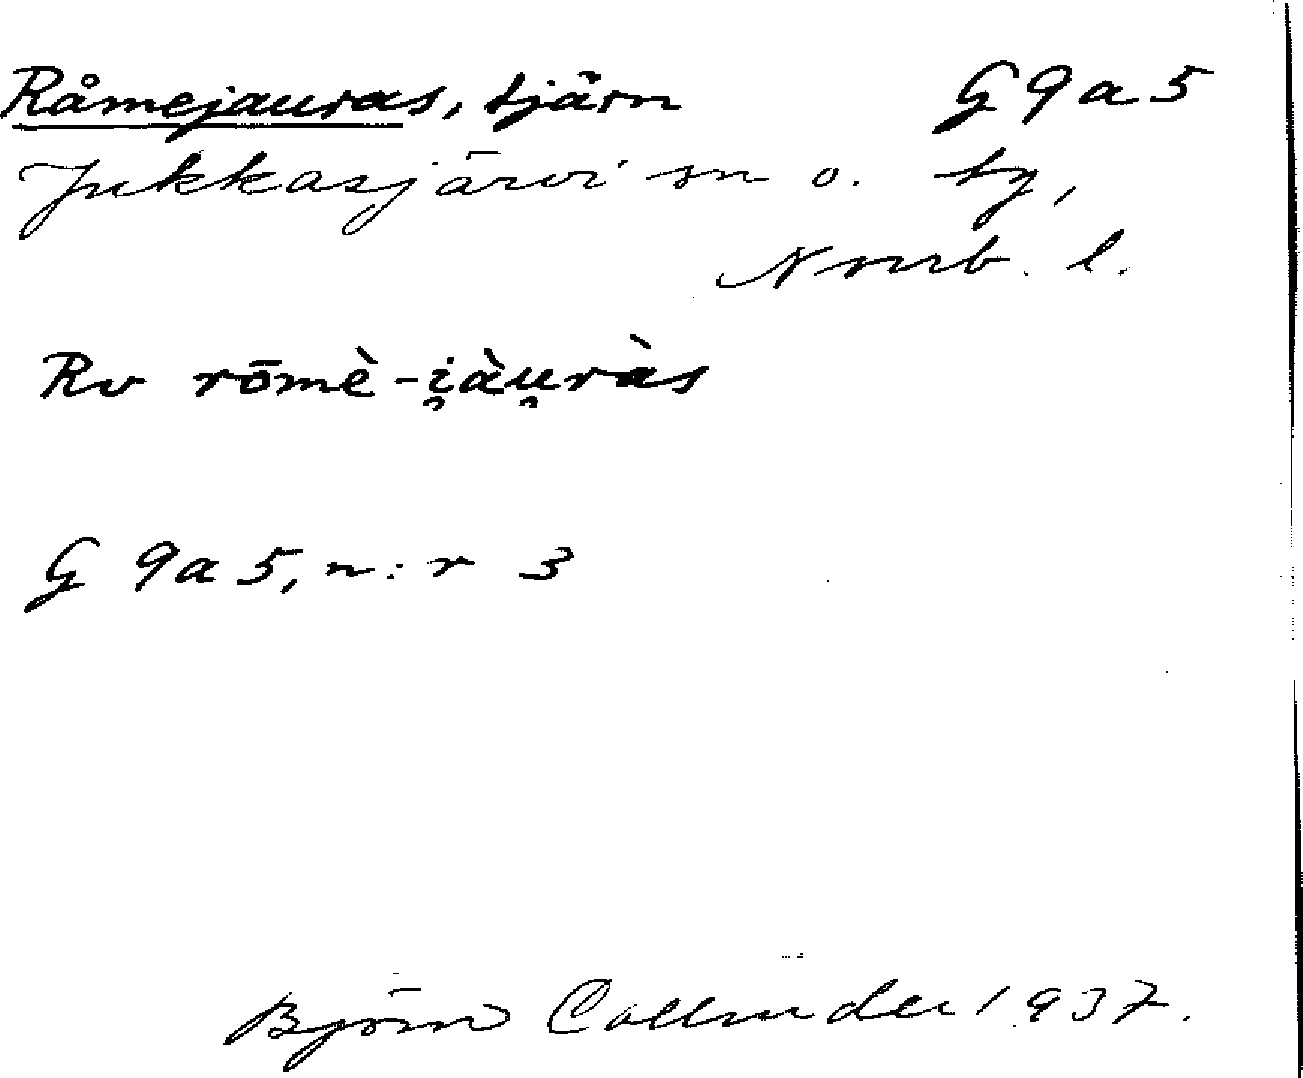 Råmejauras, tjärn G 9 a 5
Jukkasjärvi sn o. tg,
Nrrb. l.
Rv rōmè-i̯àu̯ràs
G 9 a 5, n:r 3
Björn Collinder 1937.